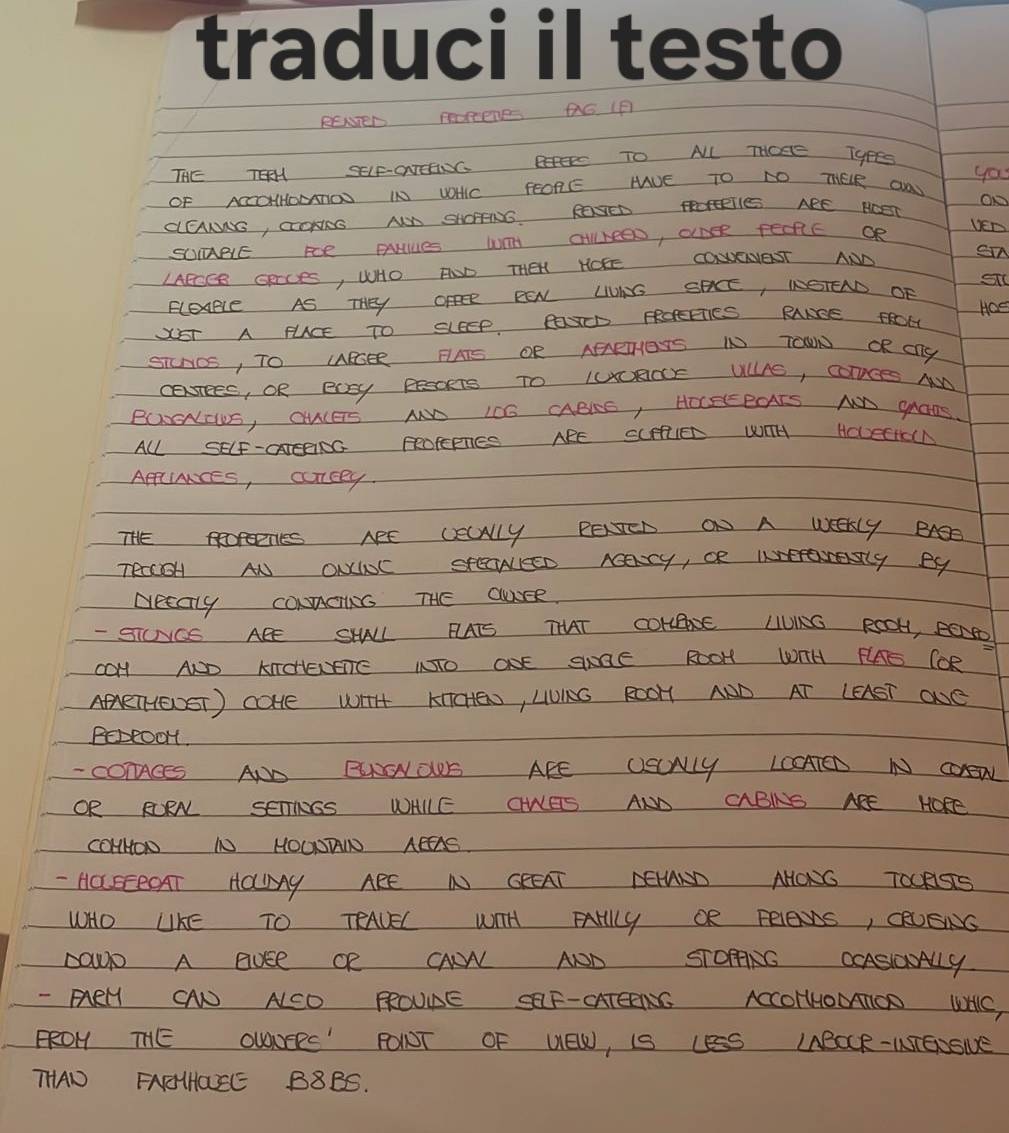 traduci il testo
RENTED PROPERTIES PAG.
THE TERM SELF-CATERING REFERS TO ALL THOSE TYPES
OF ACCOMMODATION IN WHIC PEOPLE HAVE TO DO THEIR OWN
CLEANING, COOKING AND SHOPPING. RENTED PROPERTIES ARE MOST
SUITABLE FOR FAMILIES WITH CHILDREN, OLDER PEOPLE OR
LARGER GROUPS, WHO FIND THEM MORE CONVENIENT AND
FLEXIBLE AS THEY OFFER REAL LIVING SPACE, INSTEAD OF
JUST A PLACE TO SLEEP. RENTED PROPERTIES RANGE FROM
STUDIOS, TO LARGER FLATS OR APARTMENTS IN TOWN OR CITY
CENTRES, OR BUSY RESORTS TO LUXURIOUS VILLAS, COTTAGES AND
BUNGALOWS, CHALETS AND LOG CABINS, HOUSEBOATS AND YACHTS.
ALL SELF-CATERING PROPERTIES ARE SUPPLIED WITH HOUSEHOLD
APPLIANCES, CUTLERY.
THE PROPERTIES ARE USUALLY RENTED ON A WEEKLY BASE
TROUGH AN ONLINE SPECIALISED AGENCY, OR INDEPENDENTLY BY
DIRECTLY CONTACTING THE OWNER.
- STUDIOS ARE SMALL FLATS THAT COMBINE LIVING ROOM, BEDRO
OM AND KITCHENETTE INTO ONE SINGLE ROOM WITH FLATS (OR
APARTMENT) COME WITH KITCHEN, LIVING ROOM AND AT LEAST ONE
BEDROOM.
- COTTAGES AND BUNGALOWS ARE USUALLY LOCATED IN COASTAL
OR RURAL SETTINGS WHILE CHALETS AND CABINS ARE MORE
COMMON IN MOUNTAIN AREAS.
- HOUSEBOAT HOLIDAY ARE IN GREAT DEMAND AMONG TOURISTS
WHO LIKE TO TRAVEL WITH FAMILY OR FRIENDS, CRUISING
DOWN A RIVER OR CANAL AND STOPPING OCASIONALLY.
- FARM CAN ALSO PROVIDE SELF-CATERING ACCOMMODATION WHIC,
FROM THE OWNERS' POINT OF VIEW, IS LESS LABOUR-INTENSIVE
THAN FARMHOUSE B&BS.